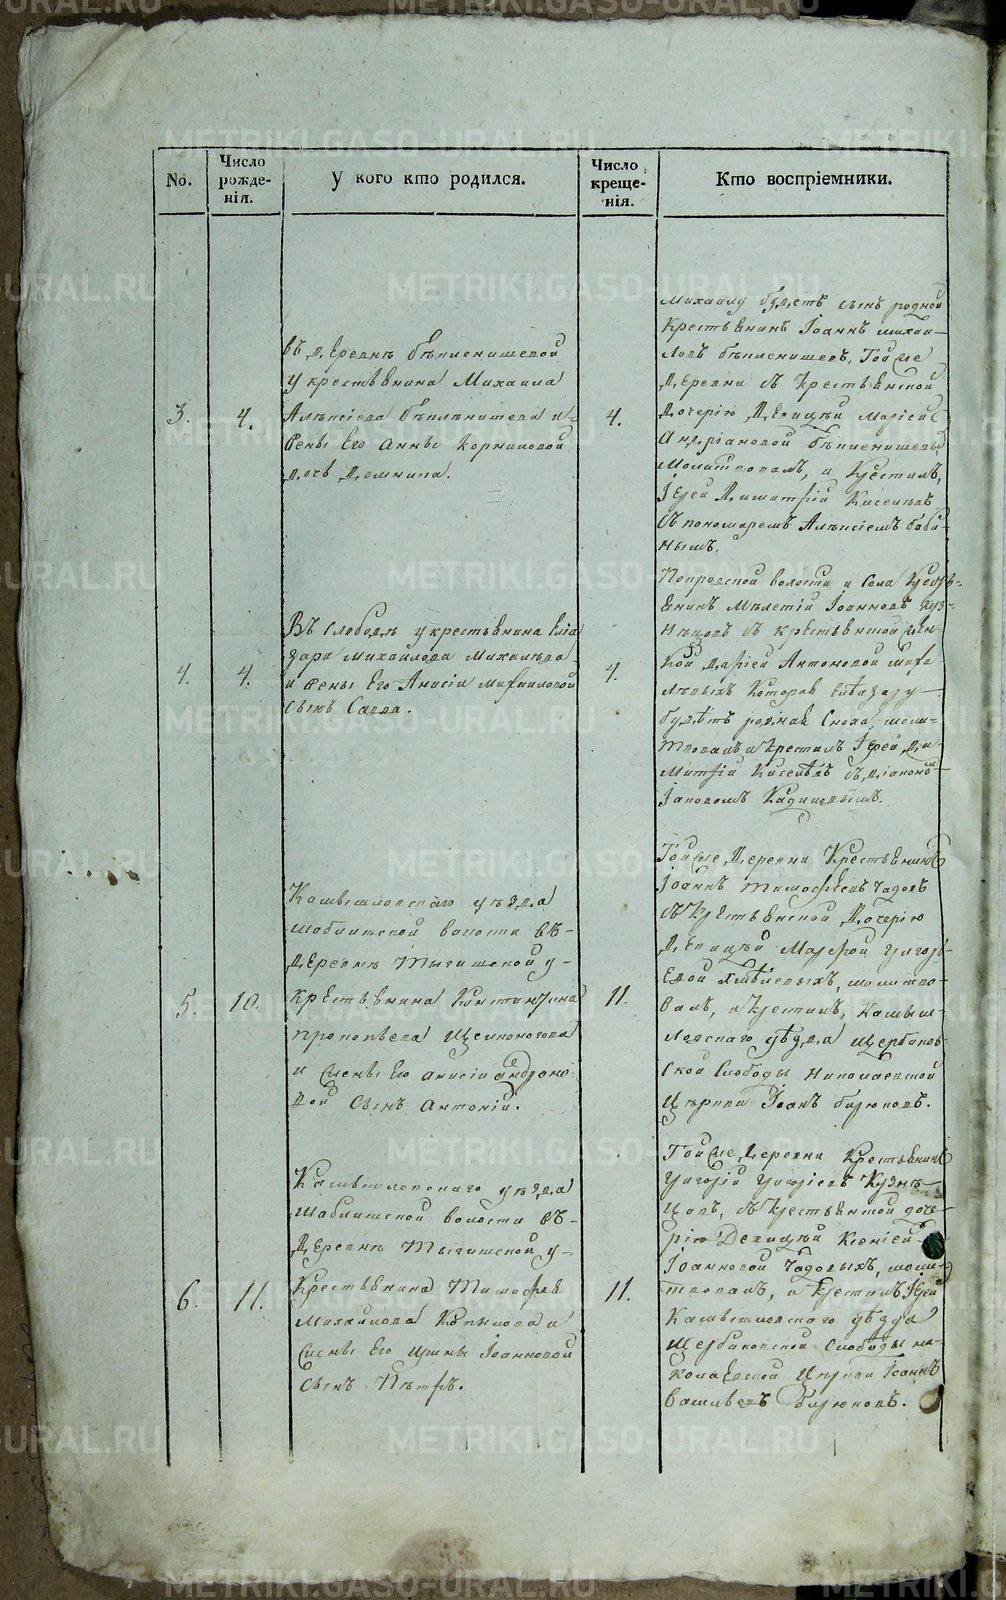 No.
Число
рожде-
нія.
у кого кто родился.
Число
креще-
нія.
Кто воспріемники.
3.
4.
въ деревнѣ
у крестьянина Михаила
Алексіева и
жены Его Анны Корниловой
дочь Домника.
4.
Михаилу будетъ сынъ родной
крестьянинъ Іоаннъ михаи-
ловъ Той же
деревни съ крестьянской
дочерію девицей Маріей
Андріановой
Молитвовалъ, и крестилъ,
Іерей Димитрій Киселевъ
съ пономаремъ Алексіемъ баби-
нымъ.
4.
4.
Въ Слободѣ у крестьянина Елиа
зара михайлова
и жены Его Анисіи михаиловой
сынъ Савва.
4.
Покровской волости и Села Крест-
янинъ Мелетій Іоанновъ Куз-
нецовъ съ крестьянской жен-
кой Даріей Антоновой миха
левыхъ которая Елеазару
будетъ родная Сноха, моли-
твовалъ и крестилъ Іерей Ди-
митрій Киселевъ съ діакономъ
Іаковомъ Кадниковымъ.
5.
10.
Камышловскаго уѣзда
шаблишской волости въ-
деревнѣ Тыгишской у-
крестьянина Константина
прокопьева Щелконогова
и жены Его анисіи андроно-
вой сынъ Антоній.
11.
Той же деревни Крестьянинъ
Іоаннъ Тимофеевъ Чадовъ
съ крестьянской дочерію
девицей Марфой Григорь-
евой молитво-
валъ, и крестилъ, Камыш-
ловскаго уѣзда Щербаков-
ской Слободы Николаевской
Церкви Іоанъ бирюковъ.
6.
11.
Камышловскаго уѣзда
Шаблишской волости въ-
деревнѣ Тыгишской у-
крестьянина Тимофея
михайлова Копылова и
жены Его ирины Іоанновой
сынъ Петръ.
11.
Той же деревни Крестьянинъ
Григорій Кузне-
цовъ, съ крестьянской доче-
рію Девицей Ксеніей
Іоанновой Чадовыхъ, моли-
твовалъ, и крестилъ Іерей
Камышловскаго уѣзда
Щербаковской Слободы ни-
колаевской Церкви Іоаннъ
васильевъ бирюковъ.
METRIKI.GASO-URAL.RU